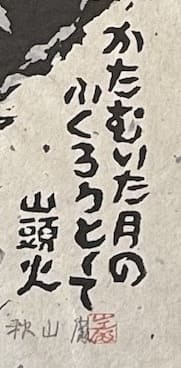 かたむいた月の
ふくろうとして
山頭火
秋山巌
巌